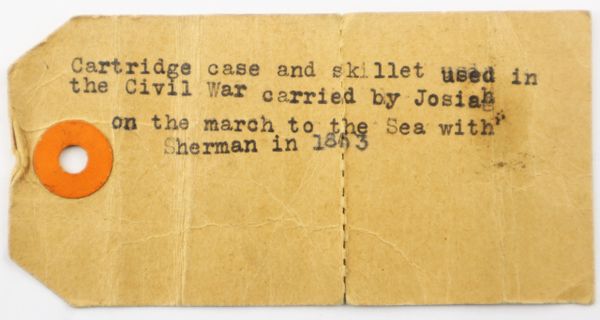 Cartridge case and skillet used in
the Civil War carried by Josiah
on the march to the Sea with
Sherman in 1863